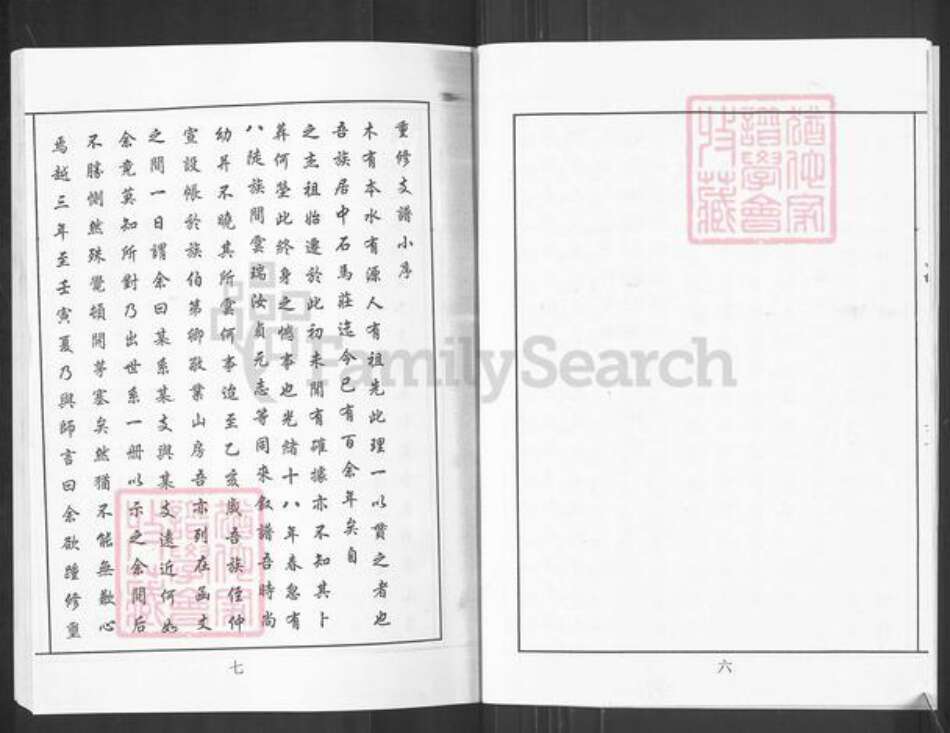 重修支譜小序
木有本水有源人有祖先此理一以貫之者也
吾族居中石馬莊迄今已有百余年矣自
之主祖始遷於此初未聞有確據亦不知其卜
葬何塋此終身之憾事也光緒十八年春忽有
八陡族間雲瑞汝貞元志等同來叙譜吾時尚
幼并不曉其所雲何事迨至乙亥歲吾族侄仲
宣設帳於族伯第卿敬業山房吾亦列在函丈
之間一日謂余曰某系某支與某支遠近何如
余竟莫知所對乃出世系一册以示之余閱后
不勝惻然殊覺頓開茅塞矣然猶不能無歉心
焉越三年至壬寅夏乃與師言曰余欲踵修重
七
六
猶他家譜學會收藏
猶他家譜學會收藏
FamilySearch